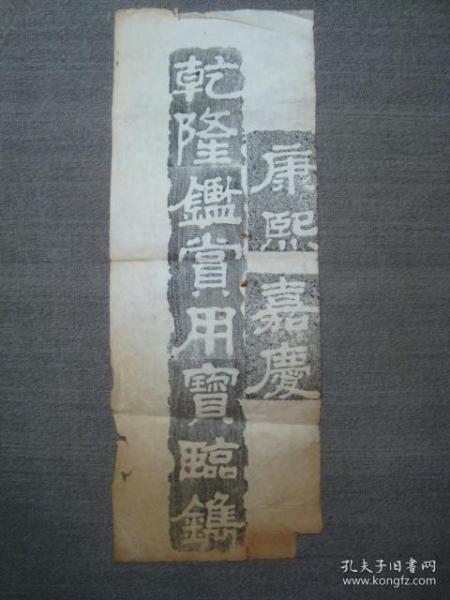 康熙
嘉慶
乾隆鑑賞用寶臨鐫
孔夫子旧书网
www.kongfz.com